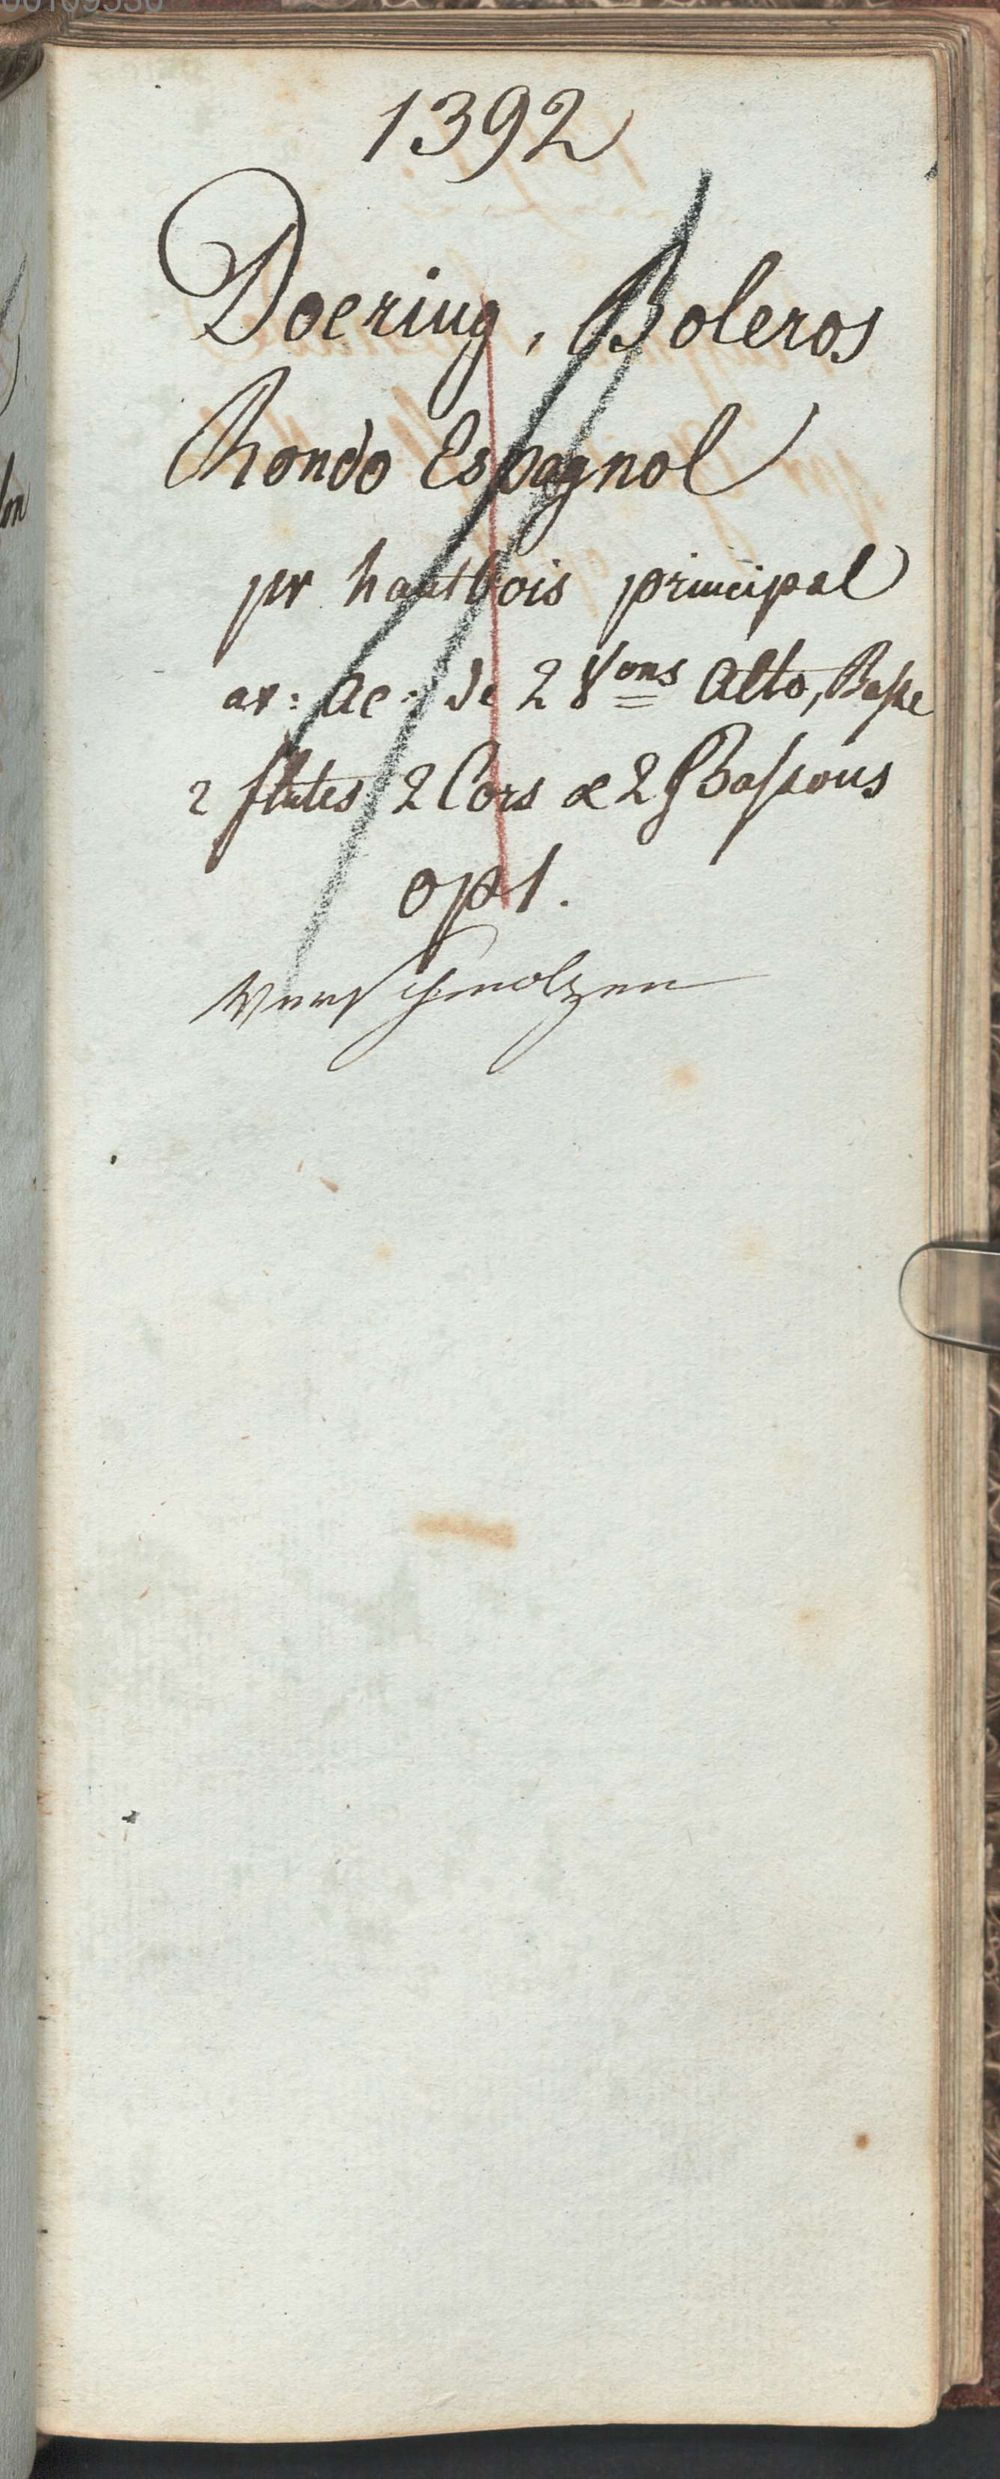 1392
Doering, Boleros
Rondo Espagnol
pr hautbois principal
av: Ac: de 2 Vons Alto, Basse
2 flutes 2 Cors & 2 Bassons
op 1.
Verschmolzen